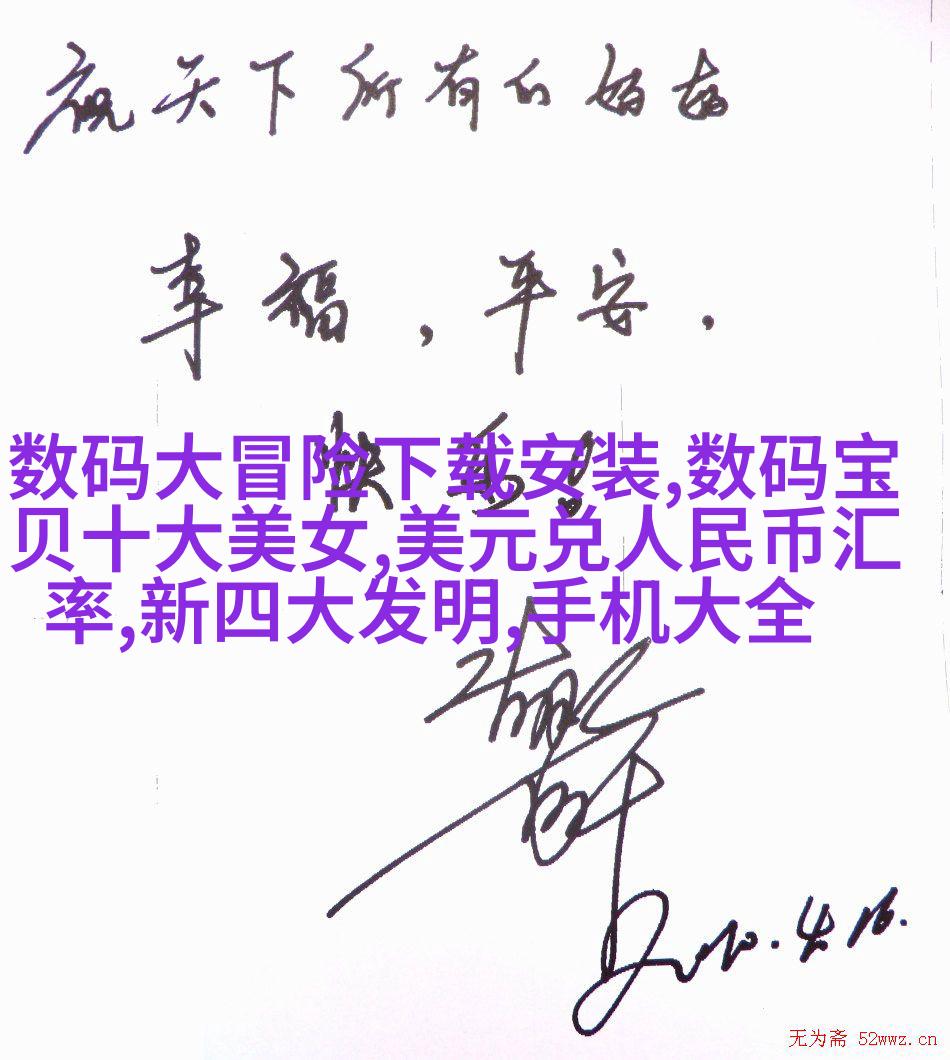 祝天下所有的妈妈
幸福，平安，
数码大冒险下载安装,数码宝
贝十大美女,美元兑人民币汇
率,新四大发明,手机大全
2010.4.16.
无为斋 52wwz.cn